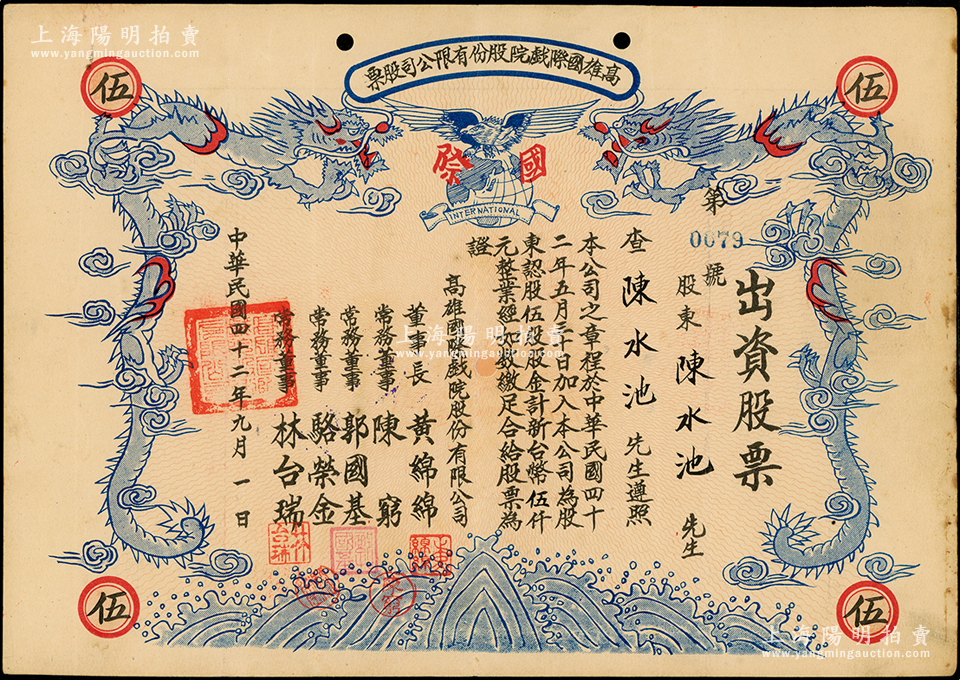 上海陽明拍賣
www.yangmingauction.com
高雄國際戲院股份有限公司股票
伍
伍
國際
INTERNATIONAL
出資股票
第
0079
號
股東 陳水池 先生
查 陳水池 先生遵照
本公司之章程於中華民國四十
二年五月二十日加入本公司為股
東認股伍股股金計新台幣伍仟
元整業經如數繳足合給股票為
證
高雄國際戲院股份有限公司
董事長 黃綿綿
常務董事 陳窮
常務董事 郭國基
常務董事 駱榮金
常務董事 林台瑞
中華民國四十二年九月一日
上海陽明拍賣
www.yangmingauction.com
伍
伍
上海陽明拍賣
www.yangmingauction.com